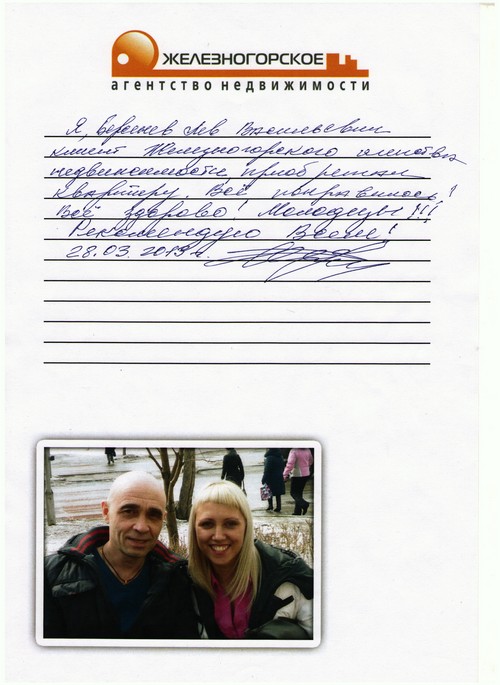 ЖЕЛЕЗНОГОРСКОЕ
агентство недвижимости
Я, Берсенев Лев Васильевич
клиент Железногорского агенства
недвижимости приобретал
квартиру. Всё понравилось!
Всё здорово! Молодцы!!!
Рекомендую Всем!
28.03.2013 г.